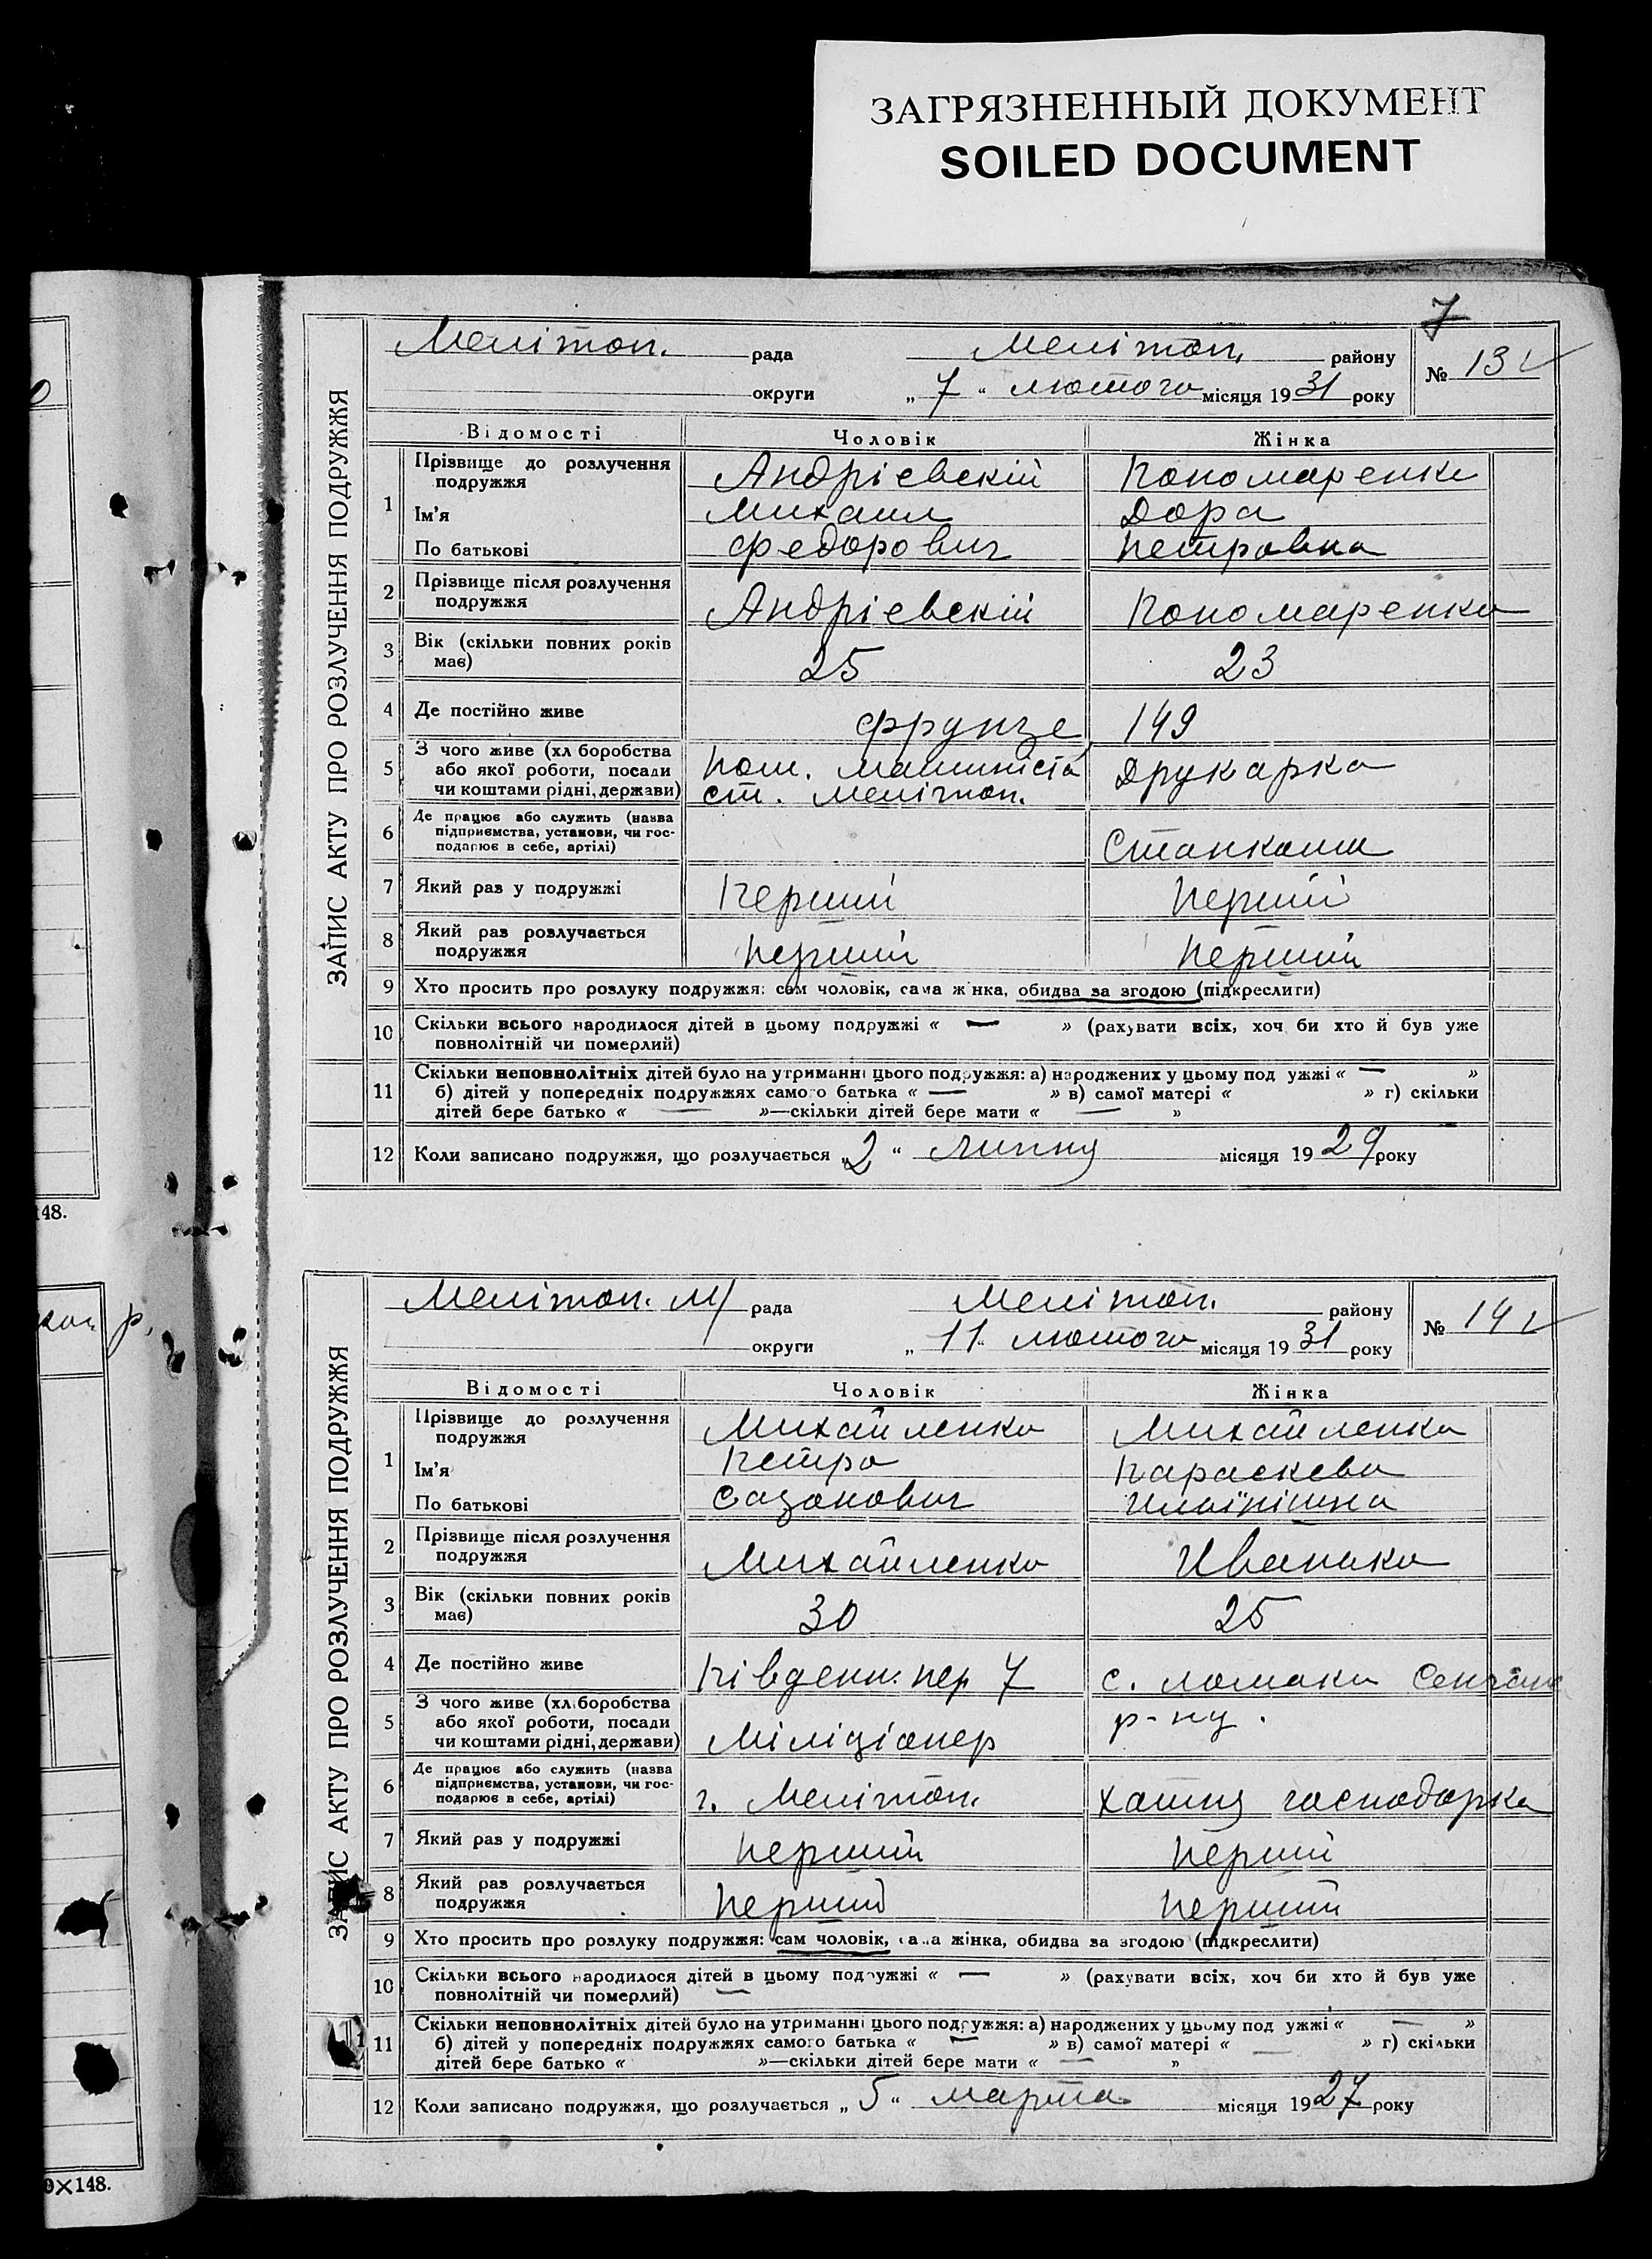 ЗАГРЯЗНЕННЫЙ ДОКУМЕНТ
SOILED DOCUMENT
7
ЗАПИС АКТУ ПРО РОЗЛУЧЕННЯ ПОДРУЖЖЯ
Мелітоп. рада Меліто́п. району № 13
округи „ 7 “ лютого місяця 1931 року
Відомості Чоловік Жінка
1 Прізвище до розлучення подружжя Андрієвскій Пономаренко
Ім'я Михаил Дора
По батькові Федорович Петровна
2 Прізвище після розлучення подружжя Андрієвскій Пономаренко
3 Вік (скільки повних років має) 25 23
4 Де постійно живе Фрунзе, 149
5 З чого живе (хліборобства або якої роботи, посади чи коштами рідні, держави) пом. машиніста ст. Мелітоп. Друкарка
6 Де працює або служить (назва підприємства, установи, чи господарює в себе, артілі)
7 Який раз у подружжі Перший Перший
8 Який раз розлучається подружжя перший перший
9 Хто просить про розлуку подружжя: сам чоловік, сама жінка, обидва за згодою (підкреслити)
10 Скільки всього народилося дітей в цьому подружжі « — » (рахувати всіх, хоч би хто й був уже
повнолітній чи померлий)
11 Скільки неповнолітніх дітей було на утриманні цього подружжя: а) народжених у цьому подружжі « — »
б) дітей у попередніх подружжях самого батька « — » в) самої матері « » г) скільки
дітей бере батько « — »—скільки дітей бере мати « — »
12 Коли записано подружжя, що розлучається „ 2 “ липня місяця 1929 року
148.
ЗАПИС АКТУ ПРО РОЗЛУЧЕННЯ ПОДРУЖЖЯ
Меліто́п. м/ рада Меліто́п. району № 14
округи „ 11 “ лютого місяця 1931 року
Відомості Чоловік Жінка
1 Прізвище до розлучення подружжя Михайленко Михайленко
Ім'я Петро Параскева
По батькові Созонович
2 Прізвище після розлучення подружжя Михайленко Иванько
3 Вік (скільки повних років має) 30 25
4 Де постійно живе Південн. пер 7 с. Ломаки
р-ну.
5 З чого живе (хліборобства або якої роботи, посади чи коштами рідні, держави) Міліціонер
6 Де працює або служить (назва підприємства, установи, чи господарює в себе, артілі) г. Меліто́п. хатня господарка
7 Який раз у подружжі перший перший
8 Який раз розлучається подружжя перший перший
9 Хто просить про розлуку подружжя: сам чоловік, сама жінка, обидва за згодою (підкреслити)
10 Скільки всього народилося дітей в цьому подружжі « — » (рахувати всіх, хоч би хто й був уже
повнолітній чи померлий)
11 Скільки неповнолітніх дітей було на утриманні цього подружжя: а) народжених у цьому подружжі « — »
б) дітей у попередніх подружжях самого батька « — » в) самої матері « — » г) скільки
дітей бере батько « »—скільки дітей бере мати « — »
12 Коли записано подружжя, що розлучається „ 5 “ марта місяця 1927 року
×148.